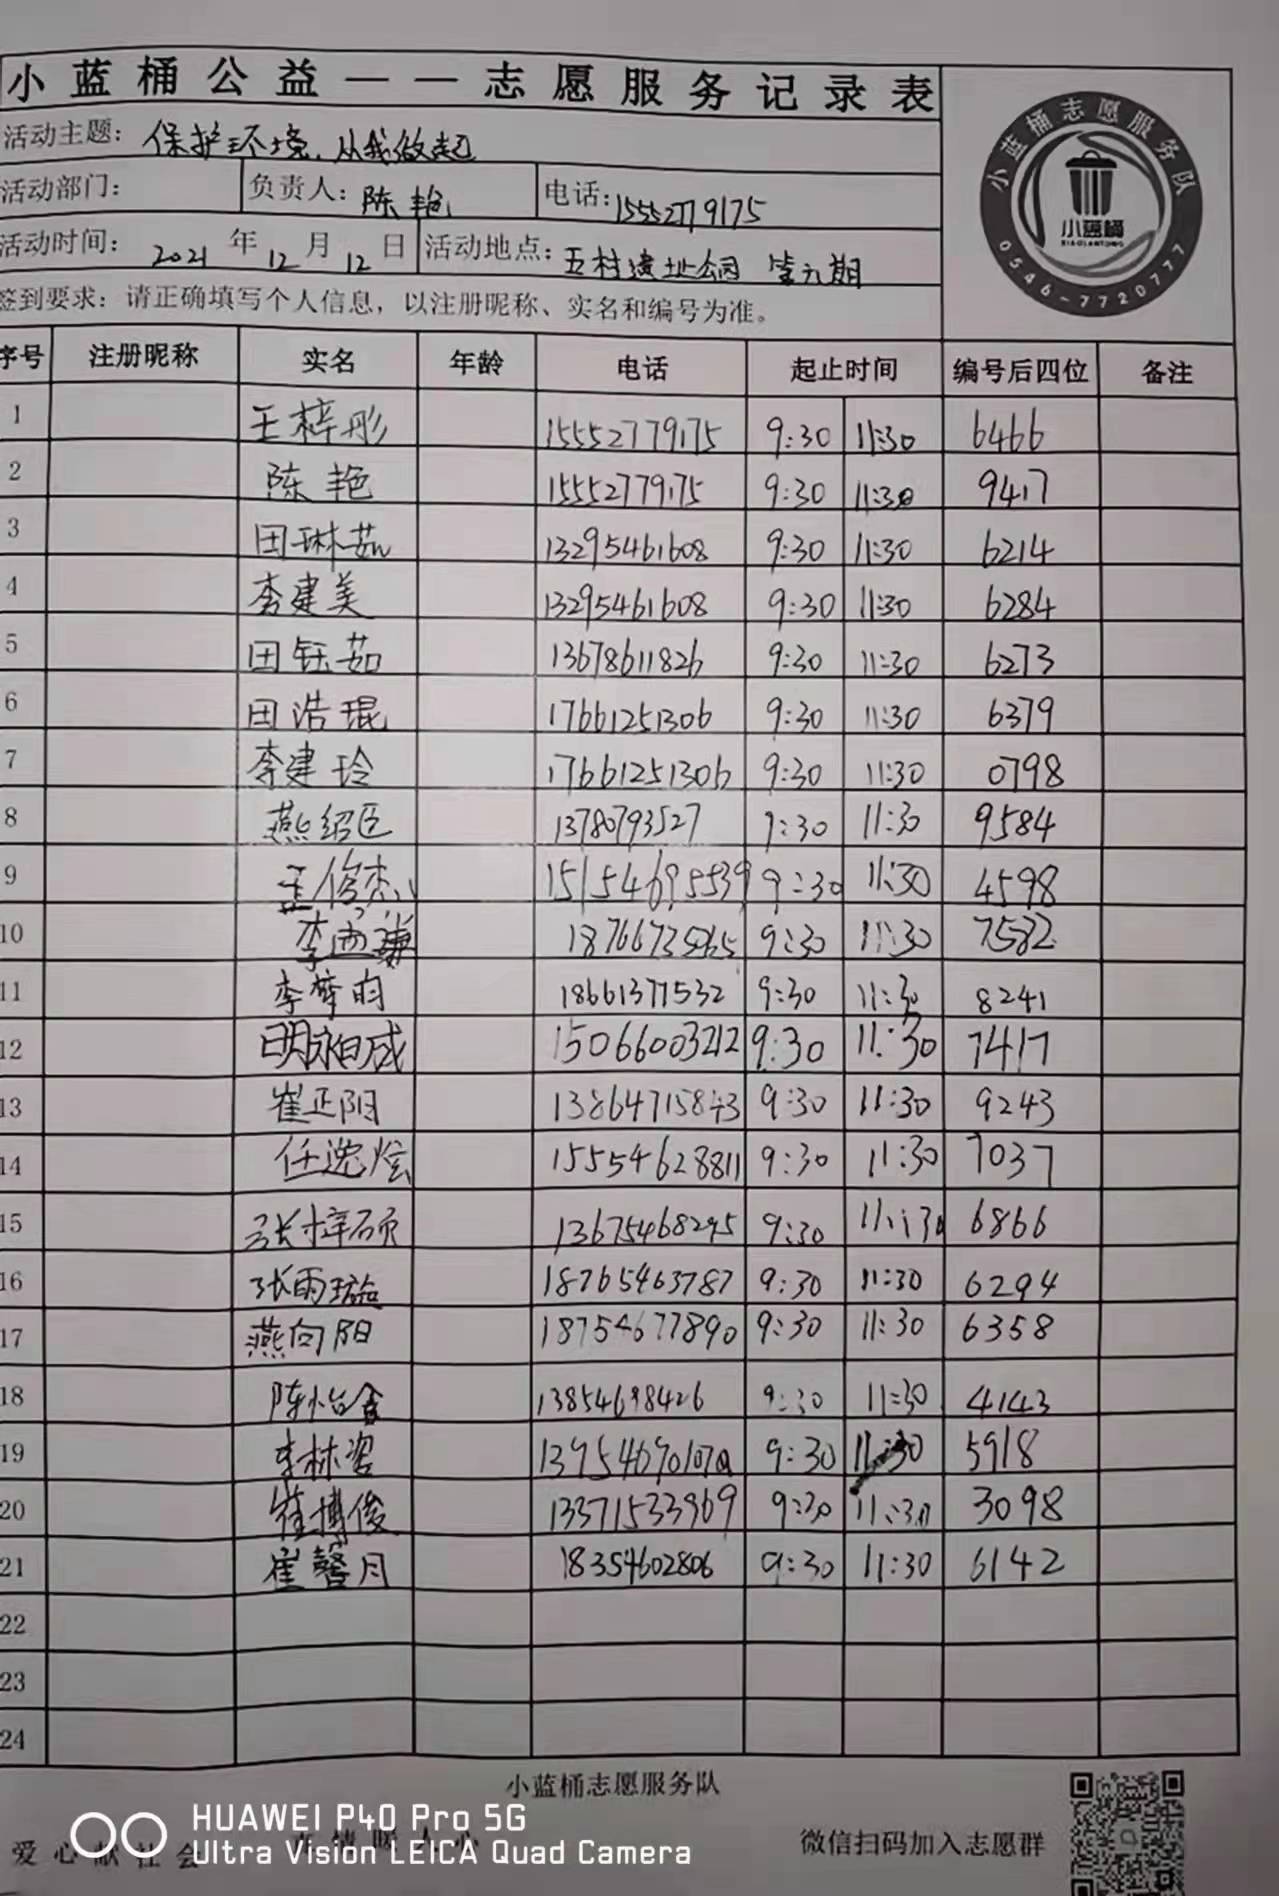 小蓝桶公益——志愿服务记录表
活动主题：保护环境，从我做起
活动部门： 负责人：陈艳 电话：15552779175
活动时间：2021年12月12日 活动地点：五村遗址公园 第九期
签到要求：请正确填写个人信息，以注册昵称、实名和编号为准。
小蓝桶志愿服务队
小蓝桶
XIAOLANTONG
0546-7720777
序号 注册昵称 实名 年龄 电话 起止时间 编号后四位 备注
1 王梓彤 15552779175 9:30 11:30 6466
2 陈艳 15552779175 9:30 11:30 9417
3 田琳茹 13295461608 9:30 11:30 6214
4 李建美 13295461608 9:30 11:30 6284
5 田钰茹 13678611826 9:30 11:30 6273
6 田浩琨 17661251306 9:30 11:30 6379
7 李建玲 17661251306 9:30 11:30 0798
8 燕绍臣 13780793527 9:30 11:30 9584
9 孟俊杰 15154695539 9:30 11:30 4598
10 9:30 11:30 7582
11 李梦雨 18661377532 9:30 11:30 8241
12 明柏成 15066003212 9:30 11:30 7417
13 崔正阳 13864715843 9:30 11:30 9243
14 任逸炫 15554628811 9:30 11:30 7037
15 张梓硕 13675468295 9:30 11:30 6866
16 张雨璇 18765463787 9:30 11:30 6294
17 燕向阳 18754677890 9:30 11:30 6358
18 陈怡含 13854698426 9:30 11:30 4143
19 李林姿 9:30 11:30 5918
20 崔博俊 13371533969 9:30 11:30 3098
21 崔馨月 18354602806 9:30 11:30 6142
22
23
24
小蓝桶志愿服务队
爱心献社会 真情暖人心 微信扫码加入志愿群
HUAWEI P40 Pro 5G
Ultra Vision LEICA Quad Camera